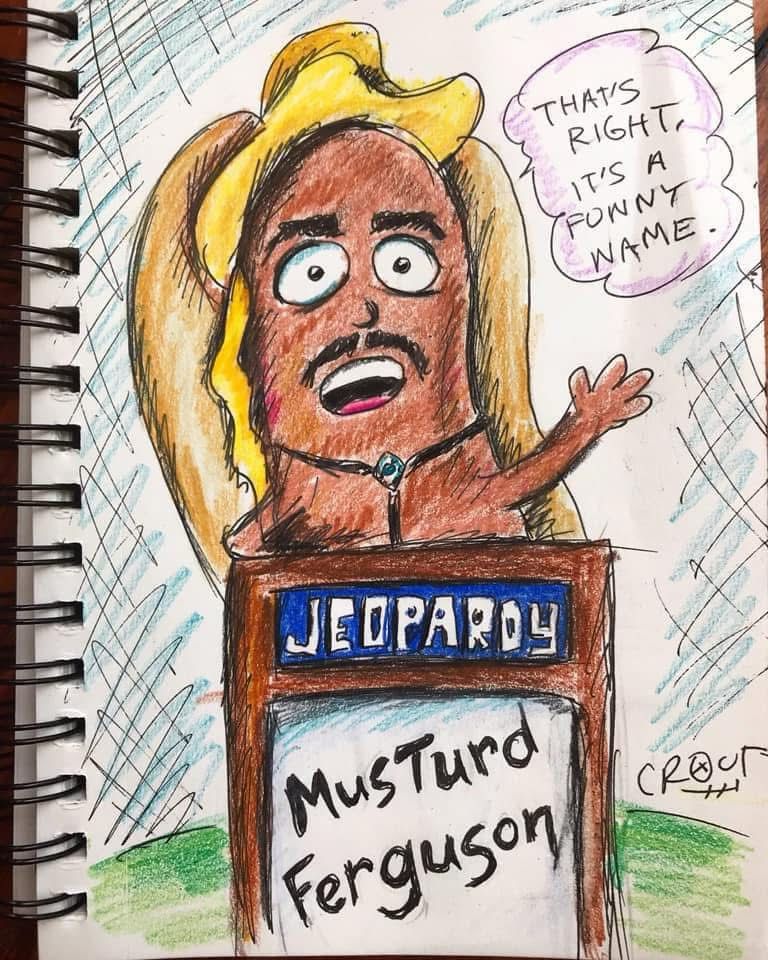 THAT'S
RIGHT,
IT'S A
FUNNY
NAME.
JEOPARDY
MusTurd
Ferguson
CROUT